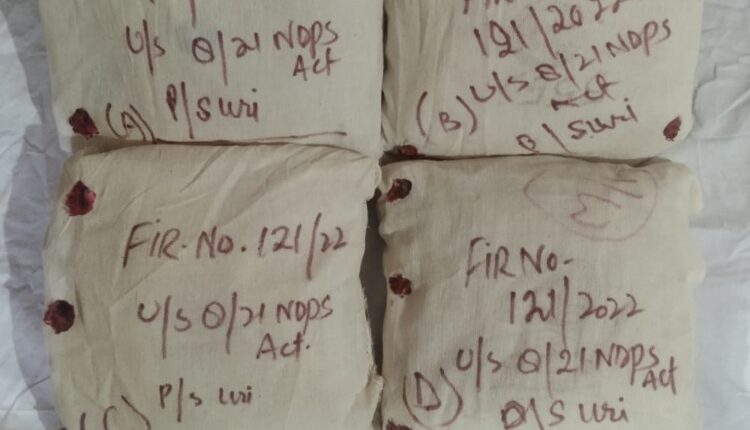 U/s 8/21 NDPS
Act
(A) P/S Uri
121/2022
U/s 8/21 NDPS
Act
(B)
P/S Uri
FIR. No. 121/22
U/s 8/21 NDPS
Act.
P/s Uri
(C)
FIR No-
121/2022
U/s 8/21 NDPS
Act
(D)
P/S Uri